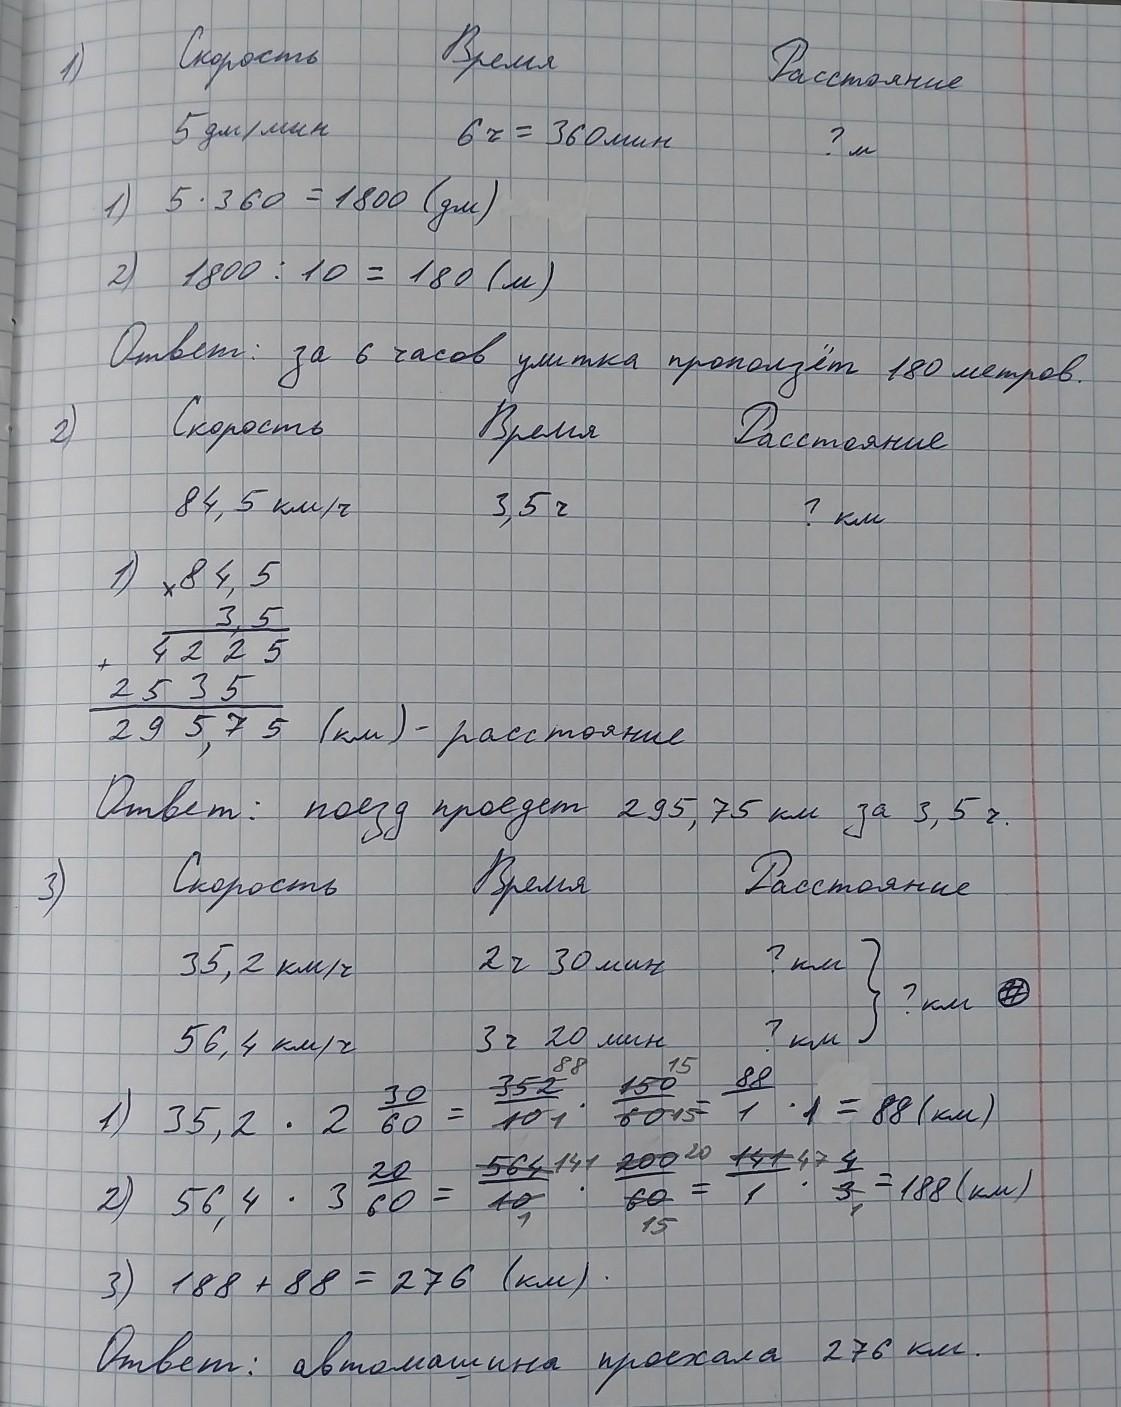 1) Скорость Время Расстояние
5 дм/мин 6 ч = 360 мин ? м
1) 5 · 360 = 1800 (дм)
2) 1800 : 10 = 180 (м)
Ответ: за 6 часов улитка проползёт 180 метров.
2) Скорость Время Расстояние
84,5 км/ч 3,5 ч ? км
1) × 84,5
3,5
+ 4225
2535
295,75 (км) - расстояние
Ответ: поезд проедет 295,75 км за 3,5 ч.
3) Скорость Время Расстояние
35,2 км/ч 2 ч 30 мин ? км
} ? км
56,4 км/ч 3 ч 20 мин ? км
1) 35,2 · 2 30/60 = 352 88/10 1 · 150 15/60 15 = 88/1 · 1 = 88 (км)
2) 56,4 · 3 20/60 = 564 141/10 1 · 200 20/60 15 = 141 47/1 · 4/3 1 = 188 (км)
3) 188 + 88 = 276 (км).
Ответ: автомашина проехала 276 км.